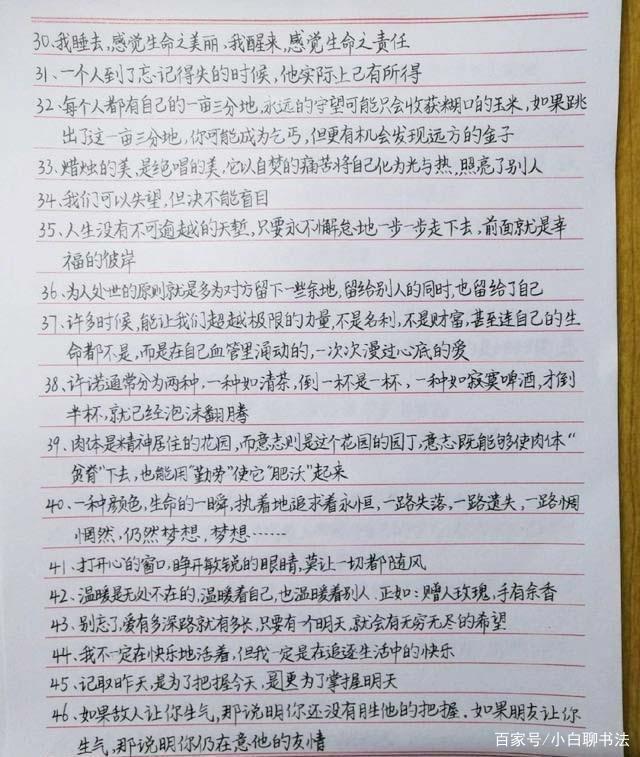 30、我睡去,感觉生命之美丽,我醒来,感觉生命之责任
31、一个人到了忘记得失的时候,他实际上已有所得
32、每个人都有自己的一亩三分地,永远的守望可能只会收获糊口的玉米,如果跳
出了这一亩三分地,你可能成为乞丐,但更有机会发现远方的金子
33、蜡烛的美,是绝唱的美,它以自焚的痛苦将自己化为光与热,照亮了别人
34、我们可以失望,但决不能盲目
35、人生没有不可逾越的天堑,只要永不懈怠地一步一步走下去,前面就是幸
福的彼岸
36、为人处世的原则就是多为对方留下一些余地,留给别人的同时,也留给了自己
37、许多时候,能让我们超越极限的力量,不是名利,不是财富,甚至连自己的生
命都不是,而是在自己血管里涌动的,一次次漫过心底的爱
38、许诺通常分为两种,一种如清茶,倒一杯是一杯,一种如寂寞啤酒,才倒
半杯,就已经泡沫翻腾
39、肉体是精神居住的花园,而意志则是这个花园的园丁,意志既能够使肉体“
贫脊”下去,也能用“勤劳”使它“肥沃”起来
40、一种颜色,生命的一瞬,执着地追求着永恒,一路失落,一路遗失,一路惆
惘然,仍然梦想,梦想……
41、打开心的窗口,睁开敏锐的眼睛,莫让一切都随风
42、温暖是无处不在的,温暖着自己,也温暖着别人.正如:赠人玫瑰,手有余香
43、别忘了,爱有多深路就有多长,只要有一个明天,就会有无穷无尽的希望
44、我不一定在快乐地活着,但我一定是在追逐生活中的快乐
45、记取昨天,是为了把握今天,是更为了掌握明天
46、如果敌人让你生气,那说明你还没有胜他的把握.如果朋友让你
生气,那说明你仍在意他的友情
百家号/小白聊书法